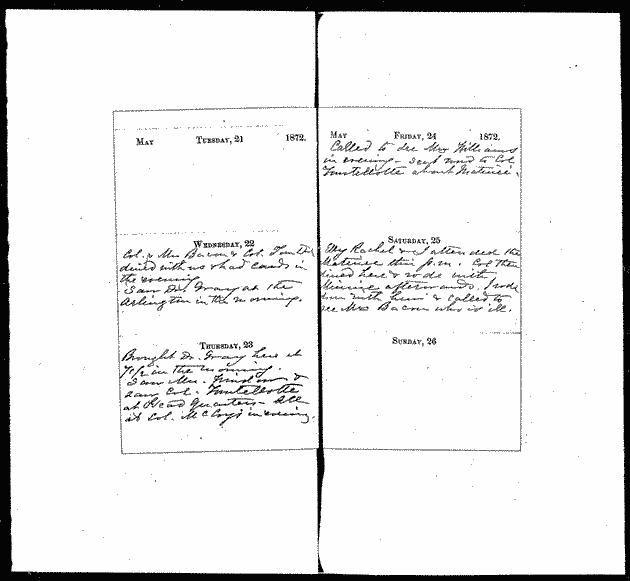 May Tuesday, 21 1872.
Wednesday, 22
Col. & Mrs Bacon & Col.
dined with us & had cards in
the evening.
Saw Dr. Gray at the
Arlington in the morning.
Thursday, 23
Brought Dr. Gray here at
7 1/2 in the morning.
Saw Mrs. &
saw Col.
at Head Quarters - All
at Col. McCoy's in evening.
May Friday, 24 1872.
Called to see Mrs Williams
in evening - sent word to Col.
about Matinee.
Saturday, 25
Rachel & I attended the
Matinee this p.m. Col then
dined here & rode with
Minnie afterwards. I rode
with him & called to
see Mrs Bacon who is ill.
Sunday, 26